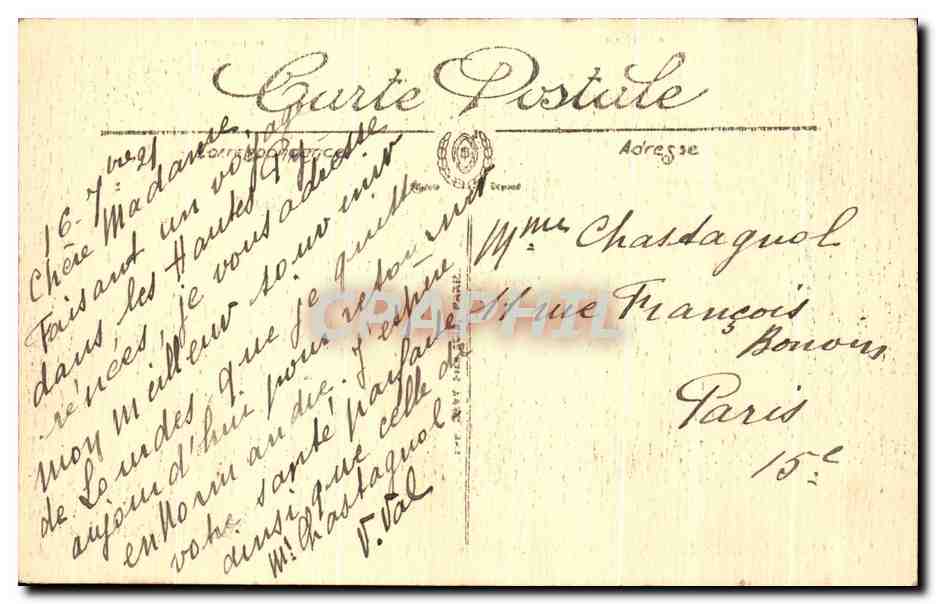 Carte Postale
Correspondance
Adresse
Modèle Déposé
16-7bre 21
Chère Madame,
Faisant un voyage
dans les Hautes Pyr
rénées, je vous adresse
mon meilleur souvenir
de Lourdes que je quitte
aujourd'hui pour retourner
en Normandie. J'espère
votre santé parfaite
ainsi que celle de
Mr Chastagnol
V. Val
Mme Chastagnol
11 rue François
Bonvin
Paris
15e
CARAPHIL